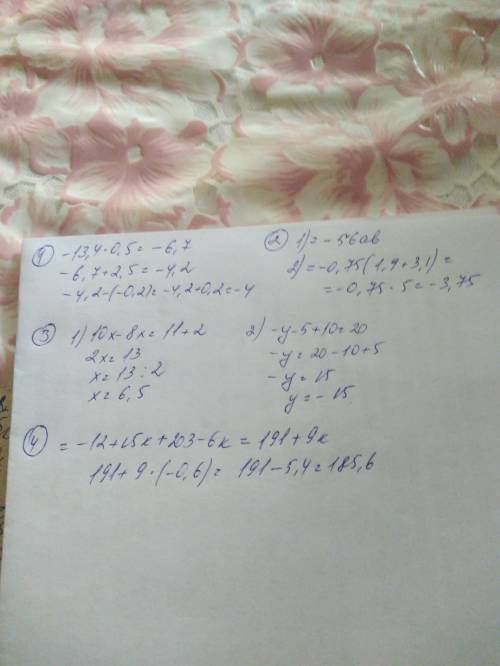 ① -13,4·0,5=-6,7
-6,7+2,5=-4,2
-4,2-(-0,2)=-4,2+0,2=-4
② 1)=-56ab
2)=-0,75(1,9+3,1)=
=-0,75·5=-3,75
③ 1) 10x-8x=11+2
2x=13
x=13:2
x=6,5
2) -y-5+10=20
-y=20-10+5
-y=15
y=-15
④ =-12+15x+203-6x=191+9x
191+9·(-0,6)=191-5,4=185,6